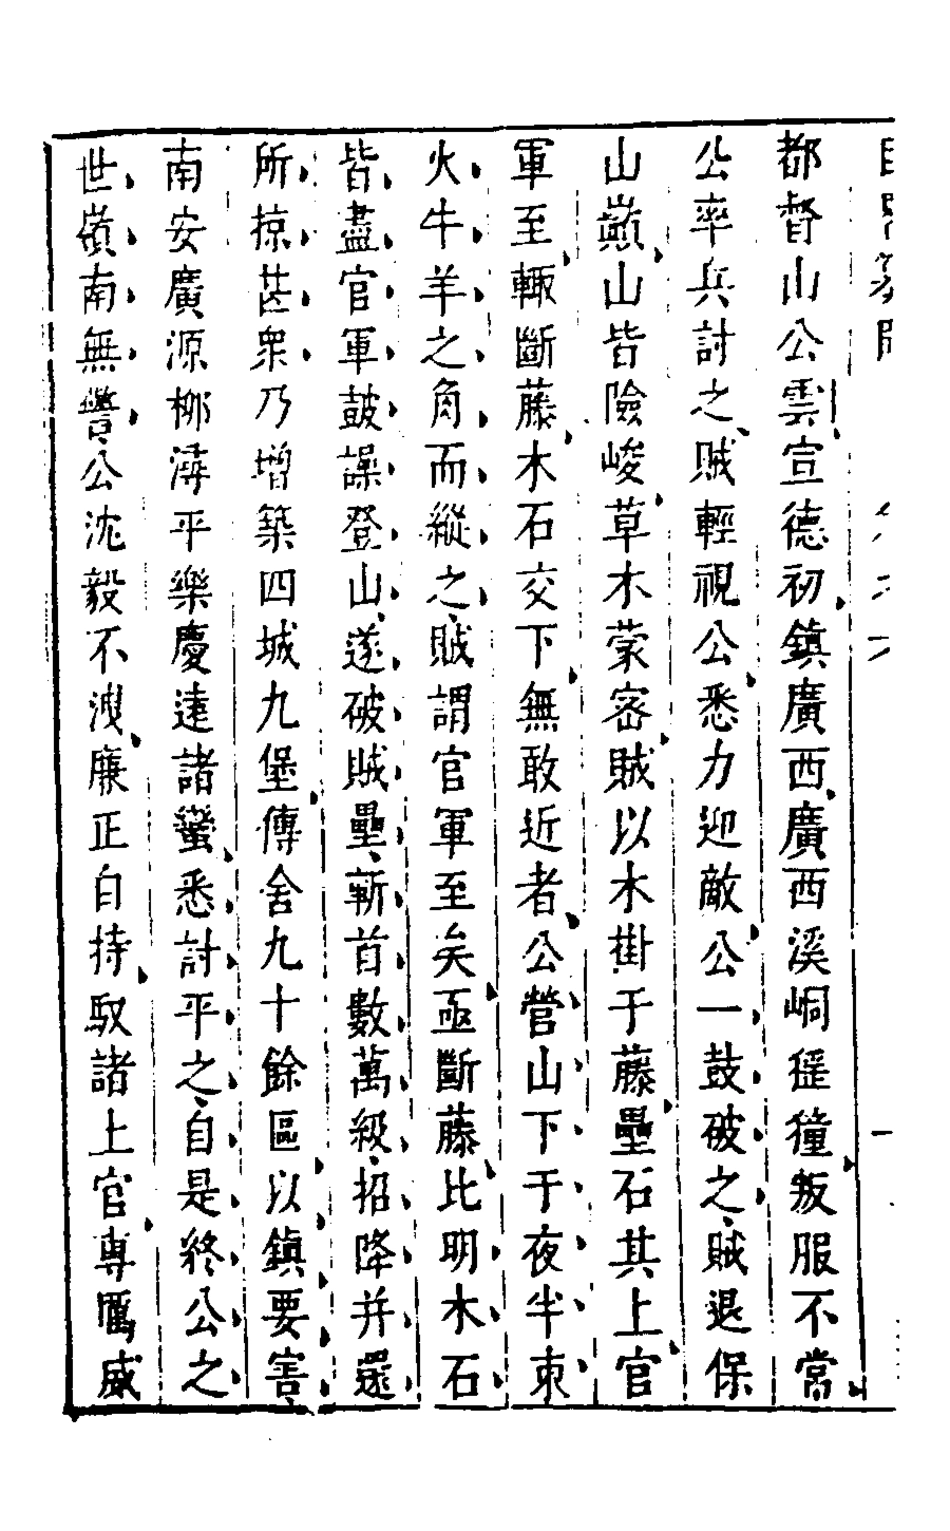 都督山公雲宣德初鎮廣西廣西溪峒徭獞叛服不常
公率兵討之賊輕視公悉力迎敵公一鼓破之賊退保
山巔山皆險峻草木蒙密賊以木掛于藤壘石其上官
軍至輙斷藤木石交下無敢近者公營山下于夜半束
火牛羊之角而縱之賊謂官軍至矣亟斷藤比明木石
皆盡官軍鼓譟登山遂破賊壘斬首數萬級招降并還
所掠甚衆乃增築四城九堡傳舍九十餘區以鎮要害
南安廣源柳潯平樂慶遠諸蠻悉討平之自是終公之
世嶺南無警公沈毅不洩廉正自持馭諸土官專厲威